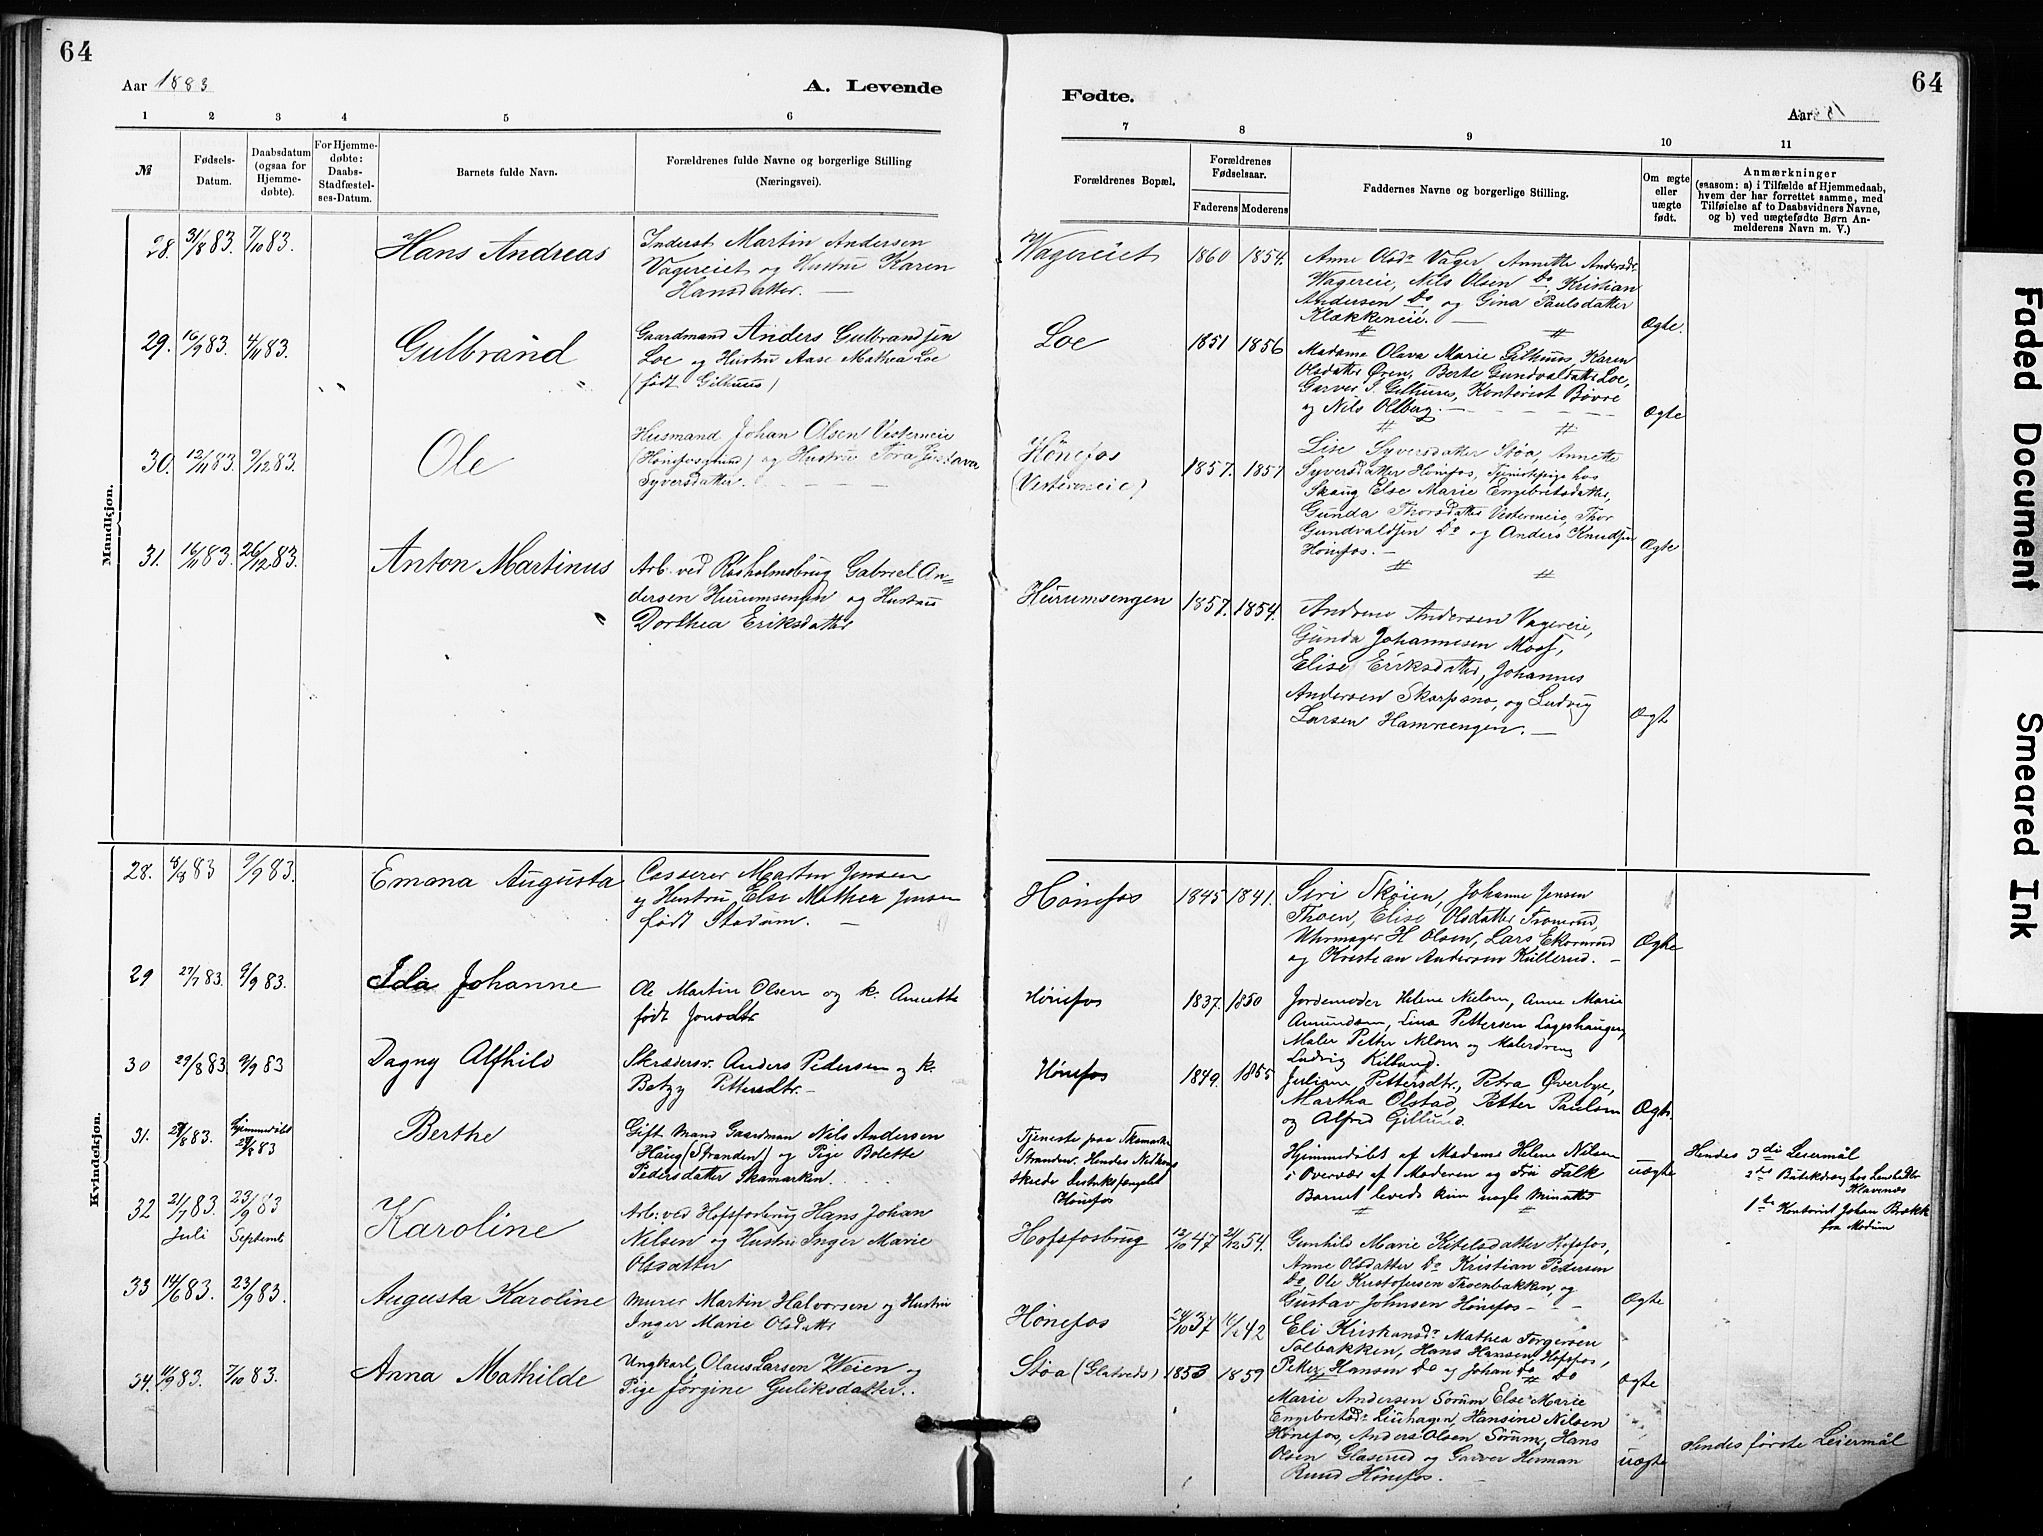 64
Aar 1883
A. Levende
1 2 3 4 5 6
№
Fødsels-Datum.
Daabsdatum (ogsaa for Hjemme-døbte).
For Hjemme-døbte: Daabs-Stadfæstel-ses-Datum.
Barnets fulde Navn.
Forældrenes fulde Navne og borgerlige Stilling
(Næringsvei).
Mandkjøn.
28. 31/8 83. 7/10 83. Hans Andreas
Inderst Martin Andersen
Vagereiet og Hustru Karen
Hansdatter. —
29. 16/9 83. 4/11 83. Gulbrand
Gaardmand Anders Gulbrandsen
Loe og Hustru Aase Mathea Loe
(født Gilhuus)
30. 12/11 83. 9/12 83. Ole
Husmand Johan Olsen Vesterneie
(Hønefosgrund) og Hustru Tora Gustava
Syversdatter.
31. 16/11 83. 26/12 83. Anton Martinus
Arb. ved Rosholmsbrug Gabriel An-
dersen Hurumsengen og Hustru
Dorthea Eriksdatter
Kvindekjøn.
28. 4/8 83 9/9 83. Emana Augusta
Casserer Martin Jensen
og Hustru Else Mathea Jensen
født Stadum. —
29 27/7 83. 9/9 83. Ida Johanne
Ole Martin Olsen og k. Annette
født Jonsdtr
30 29/8 83. 9/9 83 Dagny Alfhild
Skrædersv. Anders Pedersen og k.
Betzy Pettersdtr. —
31. 29/8 83. Hjemmedøbt 29/8 83 Berthe
Gift Mand Gaardman Nils Andersen
Haug (Stranden) og Pige Bolette
Pedersdatter Skamarken.
32 21/7 83. 23/9 83
Juli Septemb Karoline
Arb. ved Hofsfosbrug Hans Johan
Nilsen og Hustru Inger Marie
Olsdatter
33 14/6 83. 23/9 83. Augusta Karoline
Murer Martin Halvorsen og Hustru
Inger Marie Olsdatter
34. 11/9 83. 7/10 83. Anna Mathilde
Ungkarl, Olaus Larsen Weien og
Pige Jørgine Guliksdatter.
64
Fødte.
Aar
7 8 9 10 11
Forældrenes Bopæl.
Forældrenes Fødselsaar.
Faderens Moderens
Faddernes Navne og borgerlige Stilling.
Om ægte eller uægte født.
Anmærkninger
(saasom: a) i Tilfælde af Hjemmedaab,
hvem der har forrettet samme, med
Tilføielse af to Daabsvidners Navne,
og b) ved uægtefødte Børn An-
melderens Navn m. V.)
Wagereiet 1860 1854.
Anne Olsdr Vager, Annette Andersdr
Wagereie, Nils Olsen Do, Kristian
Andersen Do, og Gina Paulsdatter
Klækkeneie. — Ægte.
Loe 1851 1856
Madame Olava Marie Gilhuus, Karen
Olsdatter Øren, Berte Gundvaldsdatter Loe,
Garver S. Gilhuus, Kontorist Bøvre
og Nils Oltberg. — Ægte
Hønefos
(Vesterneie) 1857. 1857
Lise Syversdatter Støa, Annette
Syversdatter Hønefos, Tjenestepige hos
Skaug Else Marie Engebretsdatter,
Gunda Thorsdatter Vesterneie, Thor
Gundvaldsen Do og Anders Knudsen
Hønefos. — Ægte
Hurumsengen 1857. 1854.
Andrine Andersen Vagereie,
Gunda Johannesen Moss,
Elise Eriksdatter, Johannes
Andersen Skarpsno, og Ludvig
Larsen Hamreengen. — Ægte
Hønefos 1845 1841.
Siri Skøien, Johanne Jensen
Thoen, Elise Olsdatter Tronrud,
Uhrmager H Olsen, Lars Ekornrud
og Kristian Andersen Kullerud. — Ægte
Hønefos 1837. 1850
Jordemoder Helene Nielsen, Anne Marie
Amundsen, Lina Pettersen Lageshaugen,
Maler Petter Nelsen og Malerdreng
Ludvig Kittung.
Hønefos 1849. 1855
Juliane Pettersdtr., Petra Øverbye,
Martha Olstad, Petter Paulsen
og Alfred Gillund. Ægte.
Tjeneste paa Skamarken
Stranden. Hendes Nedkomst
skede Distriktsfængslet
Hønefos
Hjemmedøbt af Madame Helene Nilsen
i Overvær af Moderen og Fru Falk
Barnet levede kun nogle Minutter
uægte
Hendes 3die Leiermål
2det Butikdreng hos Landhdler
Klavenæs
1ste Kontorist Johan Brækk
fra Modum
Hofsfosbrug 12/10 47 21/12 54.
Gunhild Marie Kittelsdatter Hofsfos,
Anne Olsdatter Do Kristian Pedersen
Do, Ole Kristofersen Thoenbakken, og
Gustav Johnsen Hønefos — Ægte
Hønefos 24/10 37 42
Eli Kristiansdr Mathea Torgersen
Tolbakken, Hans Hansen Hofsfos,
Petter Hansen Do og Johan Do Do ægte
Støa (Glatveds) 1853 1859
Marie Andersen Sørum Else Marie
Engebretsdr Liuhagen, Hansine Nilsen
Hønefos, Anders Olsen Sørum, Hans
Olsen Glaserud og Garver Herman
Ruud Hønefos. —
uægte
Hendes første Leiermål
Faded Document
Smeared Ink